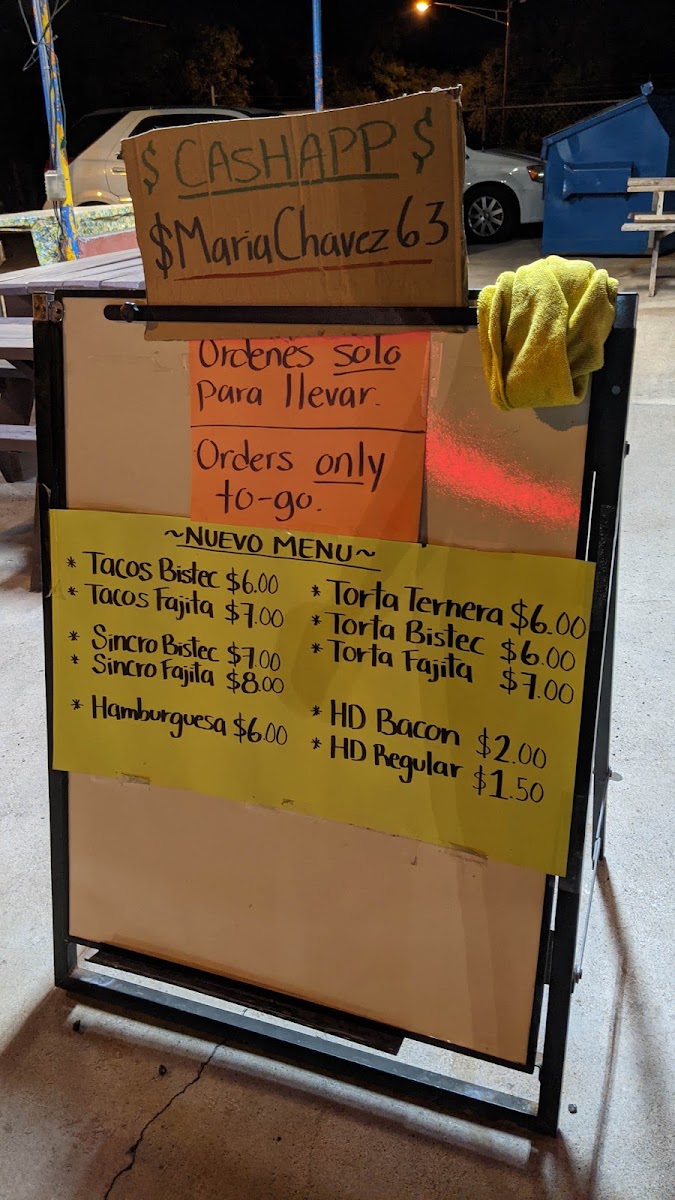 $ CASHAPP $
$MariaChavez63
Ordenes solo
para llevar.
Orders only
to-go.
~NUEVO MENU~
* Tacos Bistec $6.00
* Tacos Fajita $7.00
* Sincro Bistec $7.00
* Sincro Fajita $8.00
* Hamburguesa $6.00
* Torta Ternera $6.00
* Torta Bistec $6.00
* Torta Fajita $7.00
* HD Bacon $2.00
* HD Regular $1.50